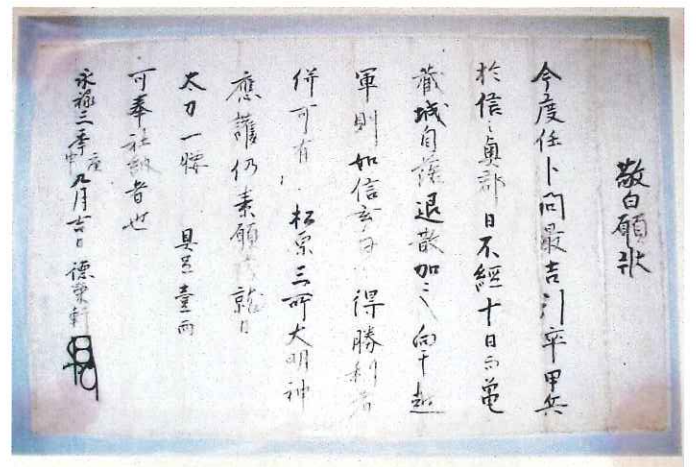 敬白願状
今度任卜問最吉引卒甲兵
於信之奥郡日不經十日而亀
蔵城自落退散加之向于越
軍則如信玄 得勝利者
併可有 松原三所大明神
應護仍素願 就日
太刀一腰 具足壹両
可奉社納者也
永禄三年庚申九月吉日 徳榮軒